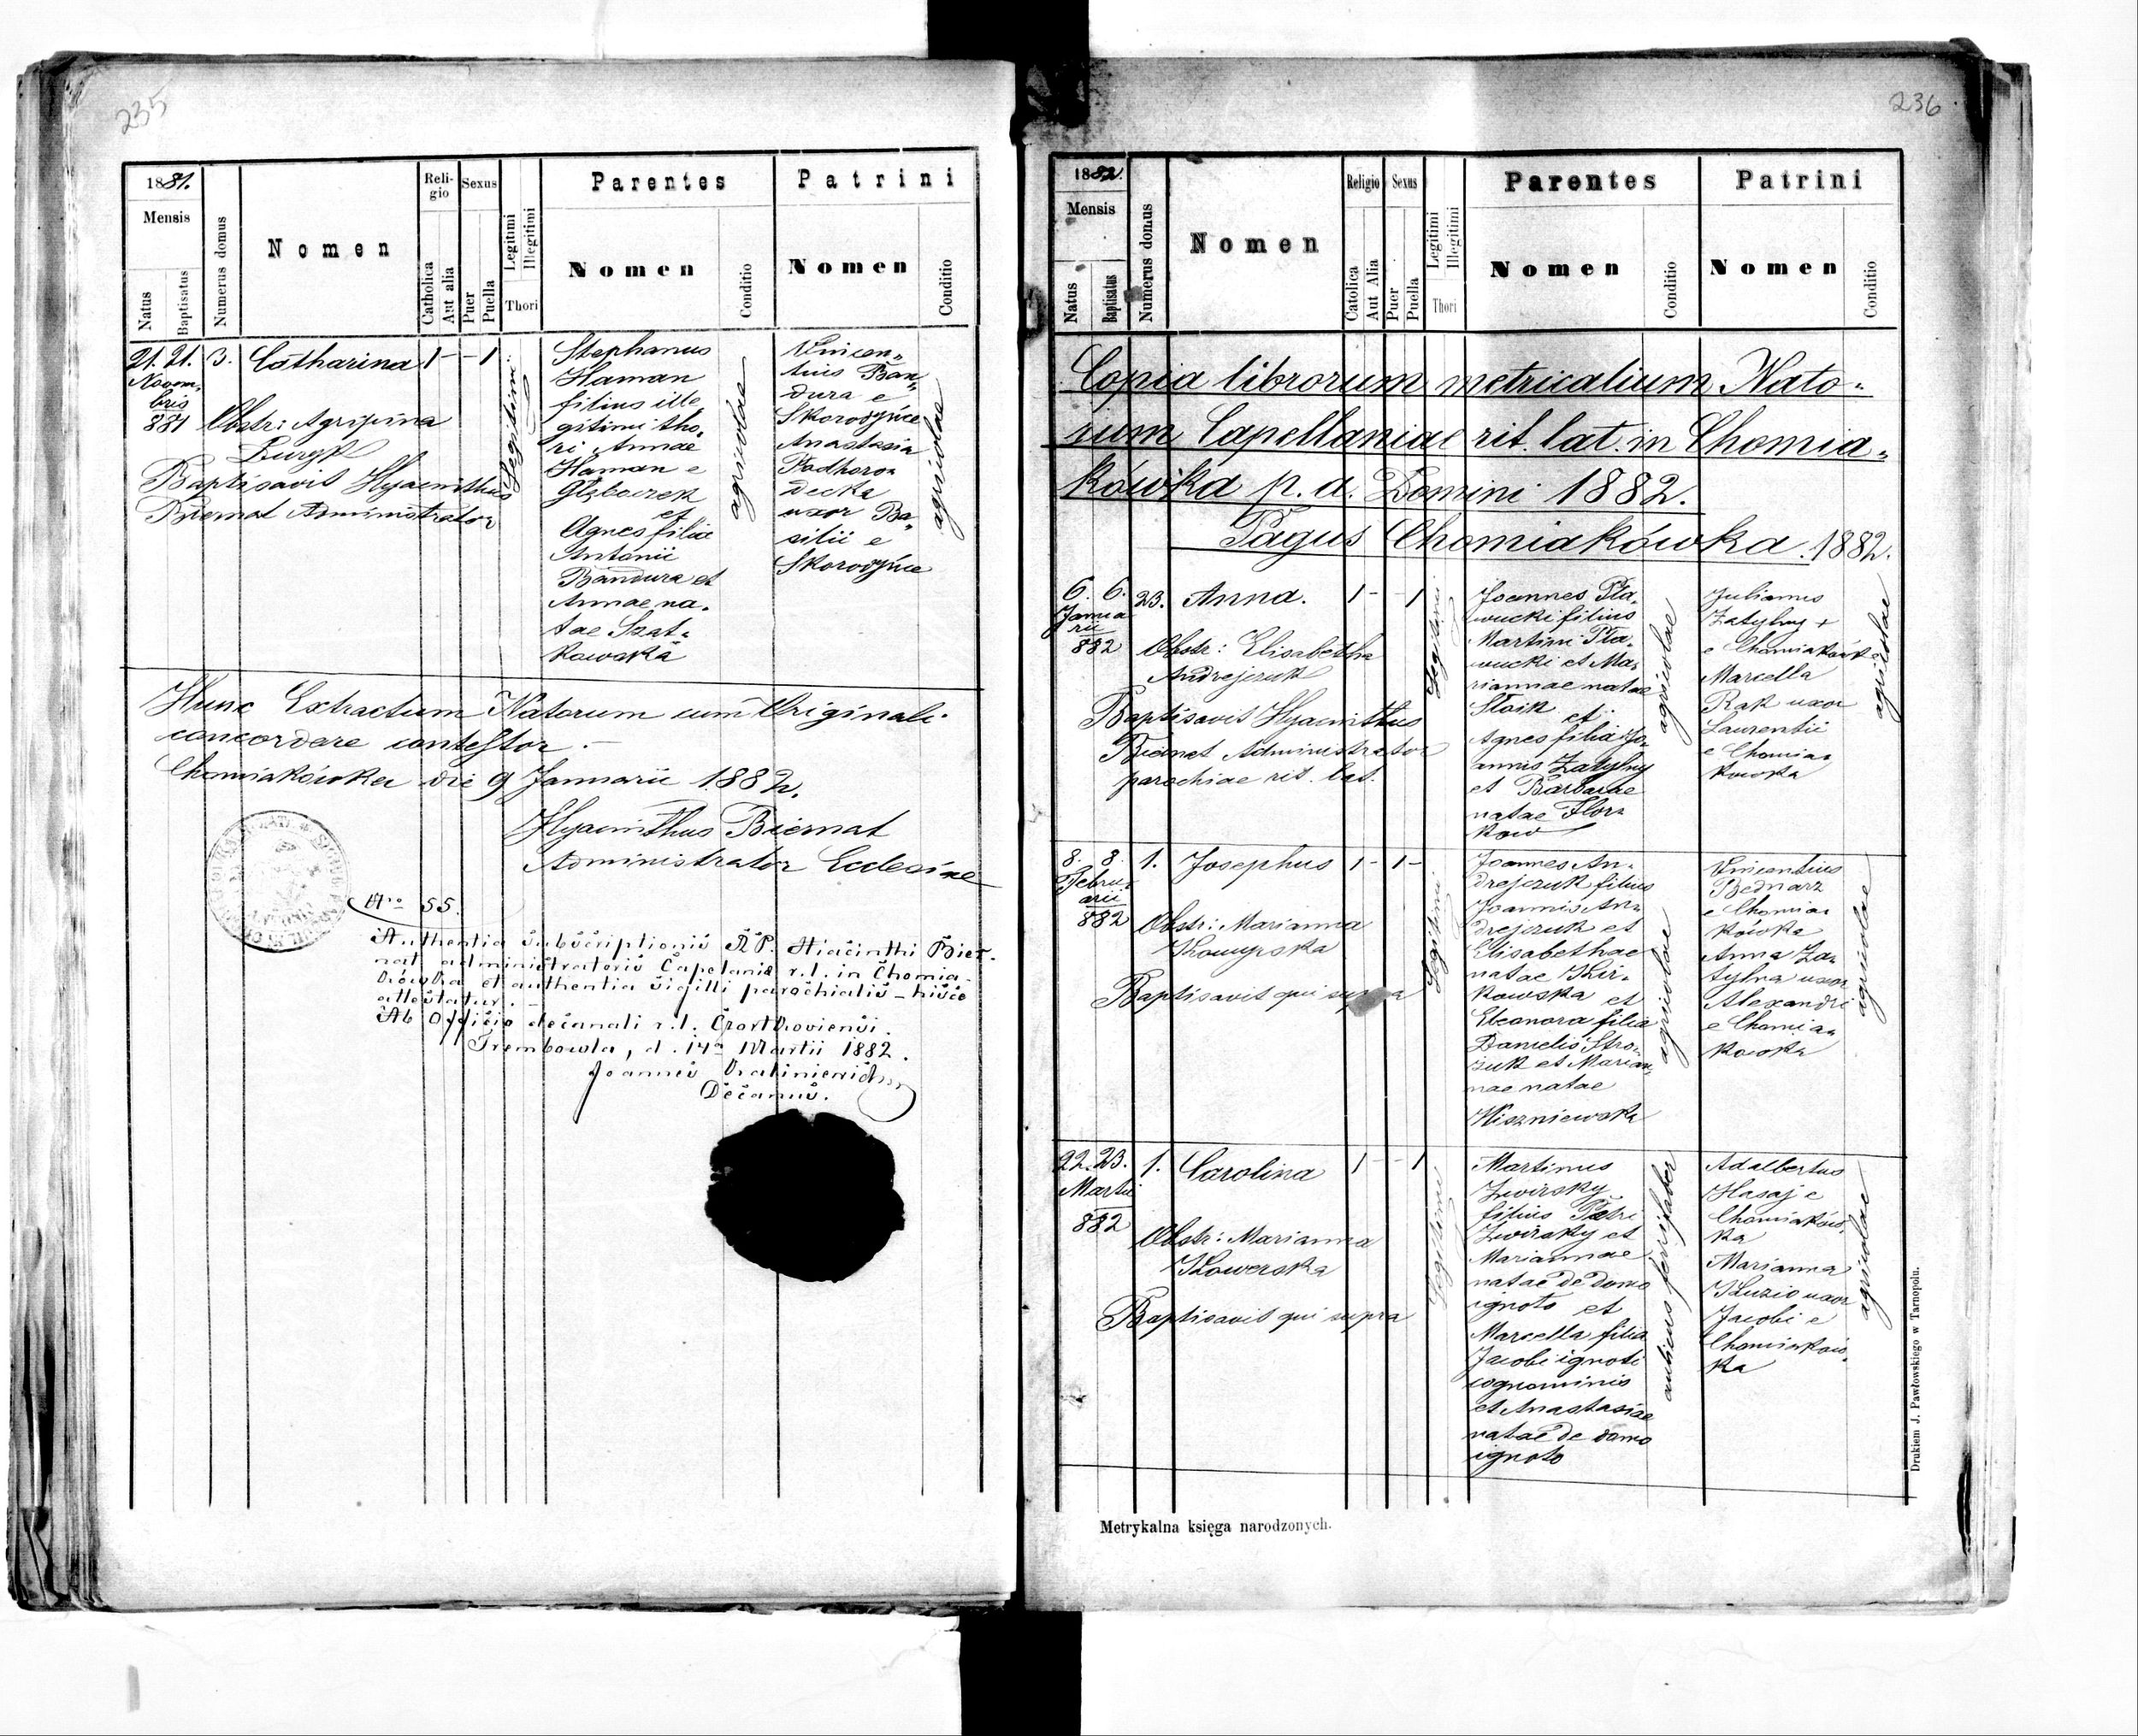 235
1881.
Mensis
Natus
Baptisatus
Numerus domus
Nomen
Reli-
gio
Catholica
Aut alia
Sexus
Puer
Puella
Legitimi
Illegitimi
Thori
Parentes
Nomen
Conditio
Patrini
Nomen
Conditio
21. 21. 3. Catharina 1 - - 1
Novem-
bris
881
Obstr: Agripina
Baptisavit Hyacinthus
Biernat Administrator
Legitimi
Stephanus
Haman
filius ille
gitimi tho-
ri Annae
Haman e
Głęboczek
et
Agnes filia
Antonii
Bandura et
Annae na-
tae Szat-
kowska
agricolae
Vincen-
tius Ban-
dura e
Skorodyńce
Anastasia
Podhoro-
decka
uxor Ba-
silii e
Skorodyńce
agricolae
Hunc Extractum Natorum cum Originali
concordare contestor.
Chomiakówka die 9 Januarii 1882.
Hyacinthus Biernat
Administrator Ecclesiae
Nro 55.
Authentia subscriptionis R.P. Hiacinthi Bier-
nat administratoris Capelania r.l. in Chomia-
kówka et authentia sigilli parochialis hisce
attestatur.
Ab Officio decanali r.l. Czortkoviensi.
Trembowla, d. 14a Martii 1882.
Joannes
Decanus.
236
1882.
Mensis
Natus
Baptisatus
Numerus domus
Nomen
Religio
Catolica
Aut Alia
Sexus
Puer
Puella
Legitimi
Illegitimi
Thori
Parentes
Nomen
Conditio
Patrini
Nomen
Conditio
Copia librorum metricalium Nato-
rum Capellaniae rit. lat. in Chomia-
kówka p. a. Domini 1882.
Pagus Chomiakówka. 1882.
6. 6. 23. Anna. 1 - - 1
Janua
rii
882
Obstr: Elisabetha
Andrejczuk
Baptisavit Hyacinthus
Biernat Administrator
parochiae rit. lat.
Legitimi
Joannes Pła-
wucki filius
Martini Pła-
wucki et Ma-
riannae natae
Słoik et
Agnes filia Jo-
annis Zatylny
et Barbarae
natae Flor-
kow
agricolae
Julianus
Zatylny +
e Chomiakówka
Marcella
Rak uxor
Laurentii
e Chomia-
kowka
agricolae
8. 8. 1. Josephus 1 - 1 -
Febru-
arii
882
Obstr: Marianna
Baptisavit qui supra
Legitimi
Joannes An-
drejczuk filius
Joannis An-
drejczuk et
Elisabethae
natae
kowska et
Eleonora filia
Danielis Stro-
zuk et Marian-
nae natae
Wiszniewska
agricolae
Vincentius
Bednarz
e Chomia-
kówka
Anna Za-
tylna uxor
Alexandri
e Chomia-
kowka
agricolae
22. 23. 1. Carolina 1 - - 1
Martii
882
Obstr: Marianna
Kowerska
Baptisavit qui supra
Legitimi
Martinus
Zwirsky
filius Petri
Zwirsky et
Mariannae
natae de domo
ignoto et
Marcella filia
Jacobi ignoti
cognominis
et Anastasiae
natae de domo
ignoto
ferrifaber
Adalbertus
Hasaj e
Chomiaków-
ka
Marianna
Kuzio uxor
Jacobi e
Chomiaków-
ka
agricolae
Drukiem J. Pawłowskiego w Tarnopolu.
Metrykalna księga narodzonych.